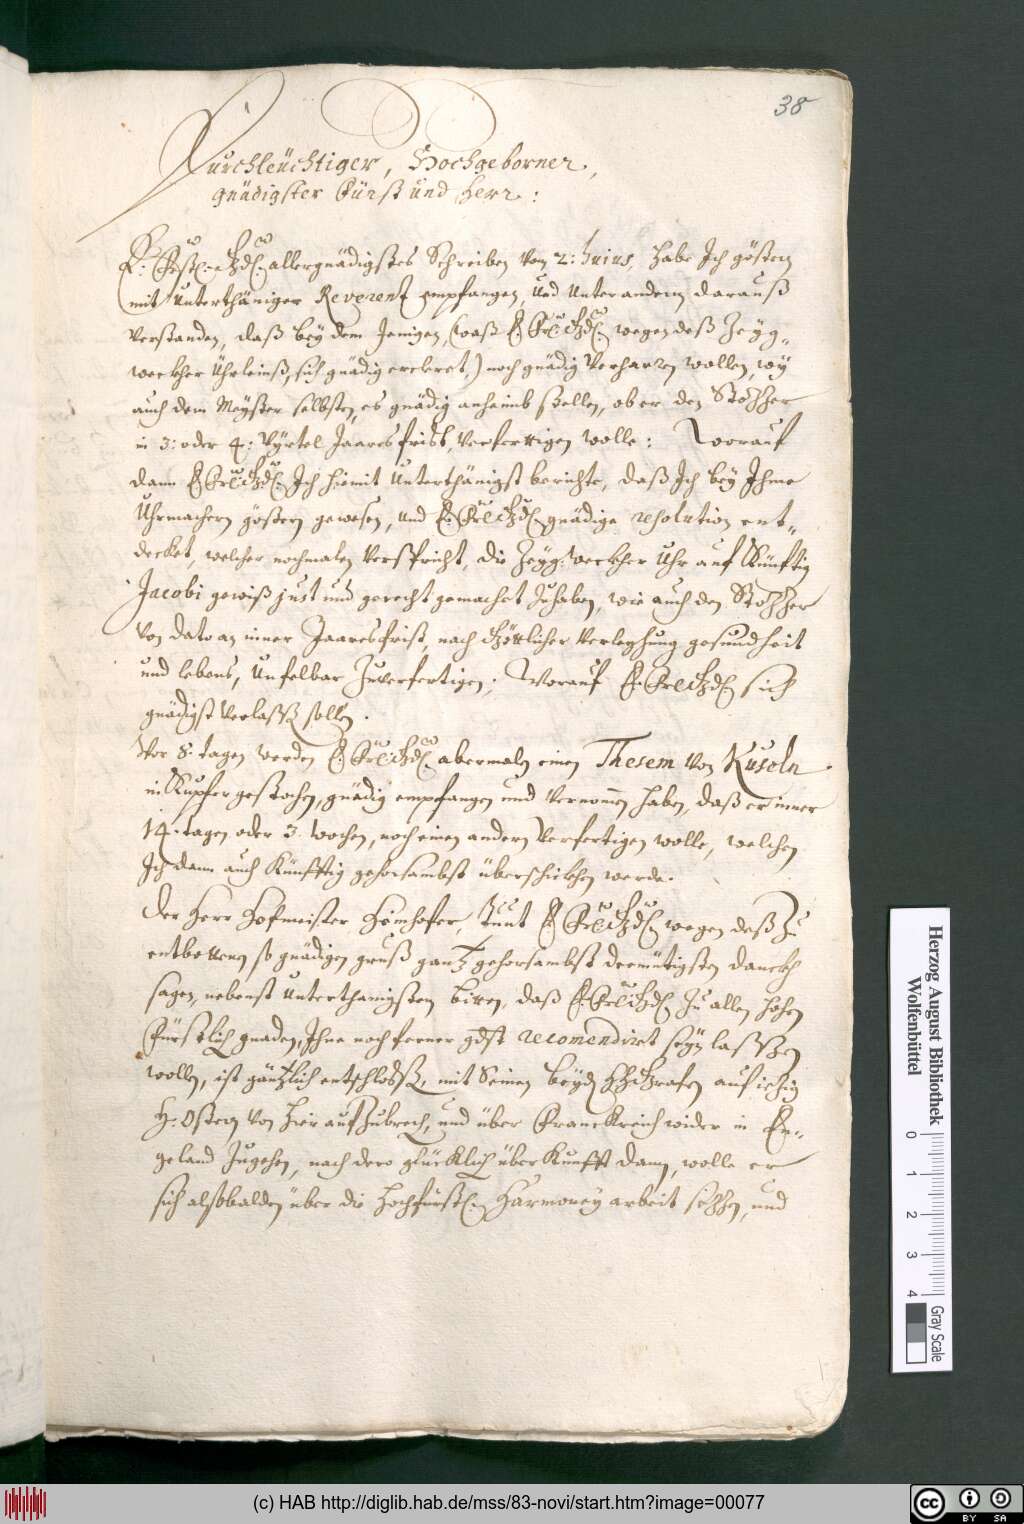 38
Durchleüchtiger, Hochgeborner,
gnädigster Fürst und Herr:
E: Frstl: Dhl: allergnädigstes Schreiben von 2: huius, habe Ich göstern
mit Unterthäniger Reverentz empfangen, Und Unter andern darauß
verstanden, daß bey dem Jenigen, (waß E. Frl: Dhl: wegen deß Zeyg-
weckher Ührleinß, sich gnädig ercleret,) noch gnädig Verharren wollen, wy
auch dem Meyster selbsten, es gnädig anheimb stellen, ob er den
in 3: oder 4: Vyrtel Jaaresfrist, Verfertigen wolle: Worauf
dann E. Frl: Dhl: Ich hiemit Unterthänigst berichte, daß Ich bey Ihme
Uhrmachern göstern gewesen, und E. Frl: Dhl: gnädige resolution ent-
decket, welcher nochmalen Verspricht, die Zeyg: Weckher Uhr auf Künftig
Jacobi gewiß just und gerecht gemachet Zuhaben, wie auch den
von dato an inner Jaaresfrist, nach Göttlicher Verleyhung gesundheit
und lebens, Unfelbar Zuverfertigen; Worauf E. Frl: Dhl: sich
gnädigst Verlassß sollen.
Vor 8. tagen werden E. Frl: Dhl: abermaln einen Thesem von Küseln
in Kupfer gestochen, gnädig empfangen und Vernom̄en haben, daß er inner
14. tagen oder 3. wochen, noch einen andern Verfertigen wolle, welchen
Ich dann auch Künfftig gehorsambst überschickhen werde.
Der Herr Hofmeister Hainhofer, thut E. Frl: Dhl: wegen deß Zu
entbottenen so gnädigen gruß gantz gehorsambst deemütigsten danckh
sagen, nebenst Unterthänigsten bitten, daß E. Frl: Dhl: Zu allen hohen
Fürstlich gnaden, Ihne noch ferner gdst recomendiret seyn lassßen
wollen, ist gäntzlich entschlosß, mit Seinen beyden Grafen auf iezig
H: Ostern von hier aufzubrech, und über Franckreich wider in En-
geland Zugehen, nach dero glücklich über Kunfft dann, wolle er
sich alsobalden über die Hochfürstl: Harmoney arbeit setzen, und
Herzog August Bibliothek
Wolfenbüttel
0 1 2 3 4
Gray Scale
(c) HAB http://diglib.hab.de/mss/83-novi/start.htm?image=00077
cc BY SA